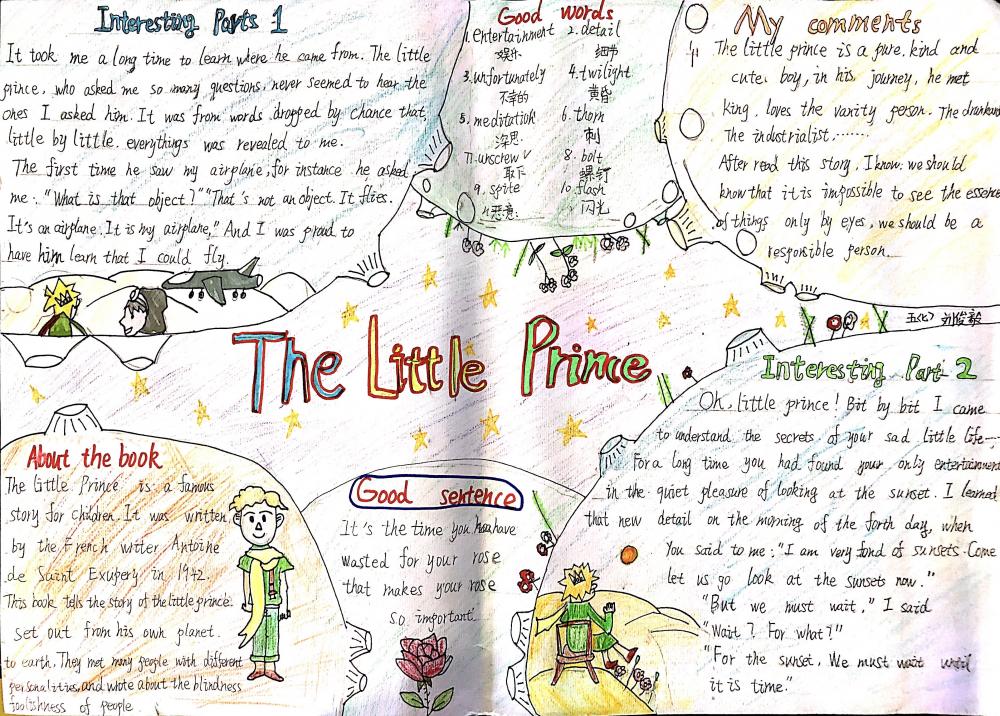 Interesting Parts 1
It took me a long time to learn where he came from. The little
prince, who asked me so many questions, never seemed to hear the
ones I asked him. It was from words dropped by chance that,
little by little. everythings was revealed to me.
The first time he saw my airplane, for instance he asked
me: "What is that object?" "That's not an object. It flies.
It's an airplane. It is my airplane." And I was proud to
have him learn that I could fly.
Good words
1. entertainment 2. detail
娱乐 细节
3. unfortunately 4. twilight
不幸的 黄昏
5. meditation 6. thorn
深思 刺
7. unscrew 8. bolt
取下 螺钉
9. spite 10. flash
恶意 闪光
My comments
The little prince is a pure. kind and
cute. boy, in his journey, he met
king. loves the vanity person. The drunkard
The industrialist.......
After read this story, I know. we should
know that it is impossible to see the essence
of things only by eyes, we should be a
responsible person.
五(7) 刘俊毅
The Little Prince
Interesting Part 2
Oh, little prince! Bit by bit I came
to understand the secrets of your sad little life—
For a long time you had found your only entertainment
in the quiet pleasure of looking at the sunset. I learned
that new detail on the morning of the forth day, when
You said to me: "I am very fond of sunsets. Come
let us go look at the sunsets now."
"But we must wait," I said
"Wait? For what?"
"For the sunset. We must wait until
it is time."
About the book
The Little Prince is a famous
story for children. It was written
by the French witter, Antoine
de Saint Exupery in 1942.
This book tells the story of the little prince.
set out from his own planet.
to earth. They met many people with different
personalities, and wrote about the blindness
foolishness of people
Good sentence
It's the time you have
wasted for your rose
that makes your rose
so important